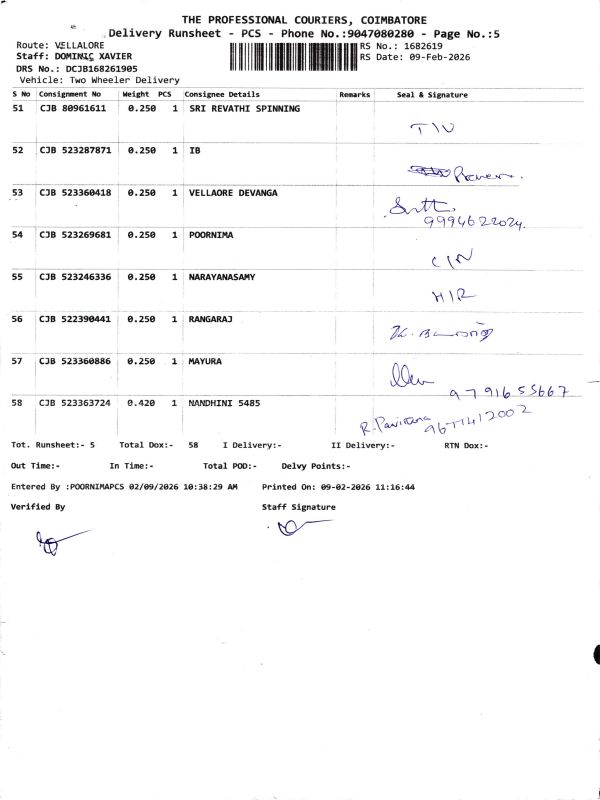 THE PROFESSIONAL COURIERS, COIMBATORE
Delivery Runsheet - PCS - Phone No.:9047080280 - Page No.:5
Route: VELLALORE
RS No.: 1682619
Staff: DOMINIC XAVIER
RS Date: 09-Feb-2026
DRS No.: DCJB168261905
Vehicle: Two Wheeler Delivery
S No Consignment No Weight PCS Consignee Details Remarks Seal & Signature
51 CJB 80961611 0.250 1 SRI REVATHI SPINNING
52 CJB 523287871 0.250 1 IB
53 CJB 523360418 0.250 1 VELLAORE DEVANGA
9994622024.
54 CJB 523269681 0.250 1 POORNIMA
55 CJB 523246336 0.250 1 NARAYANASAMY
56 CJB 522390441 0.250 1 RANGARAJ
57 CJB 523360886 0.250 1 MAYURA
9791655667
58 CJB 523363724 0.420 1 NANDHINI 5485
9677412002
Tot. Runsheet:- 5 Total Dox:- 58 I Delivery:- II Delivery:- RTN Dox:-
Out Time:- In Time:- Total POD:- Delvy Points:-
Entered By :POORNIMAPCS 02/09/2026 10:38:29 AM Printed On: 09-02-2026 11:16:44
Verified By Staff Signature